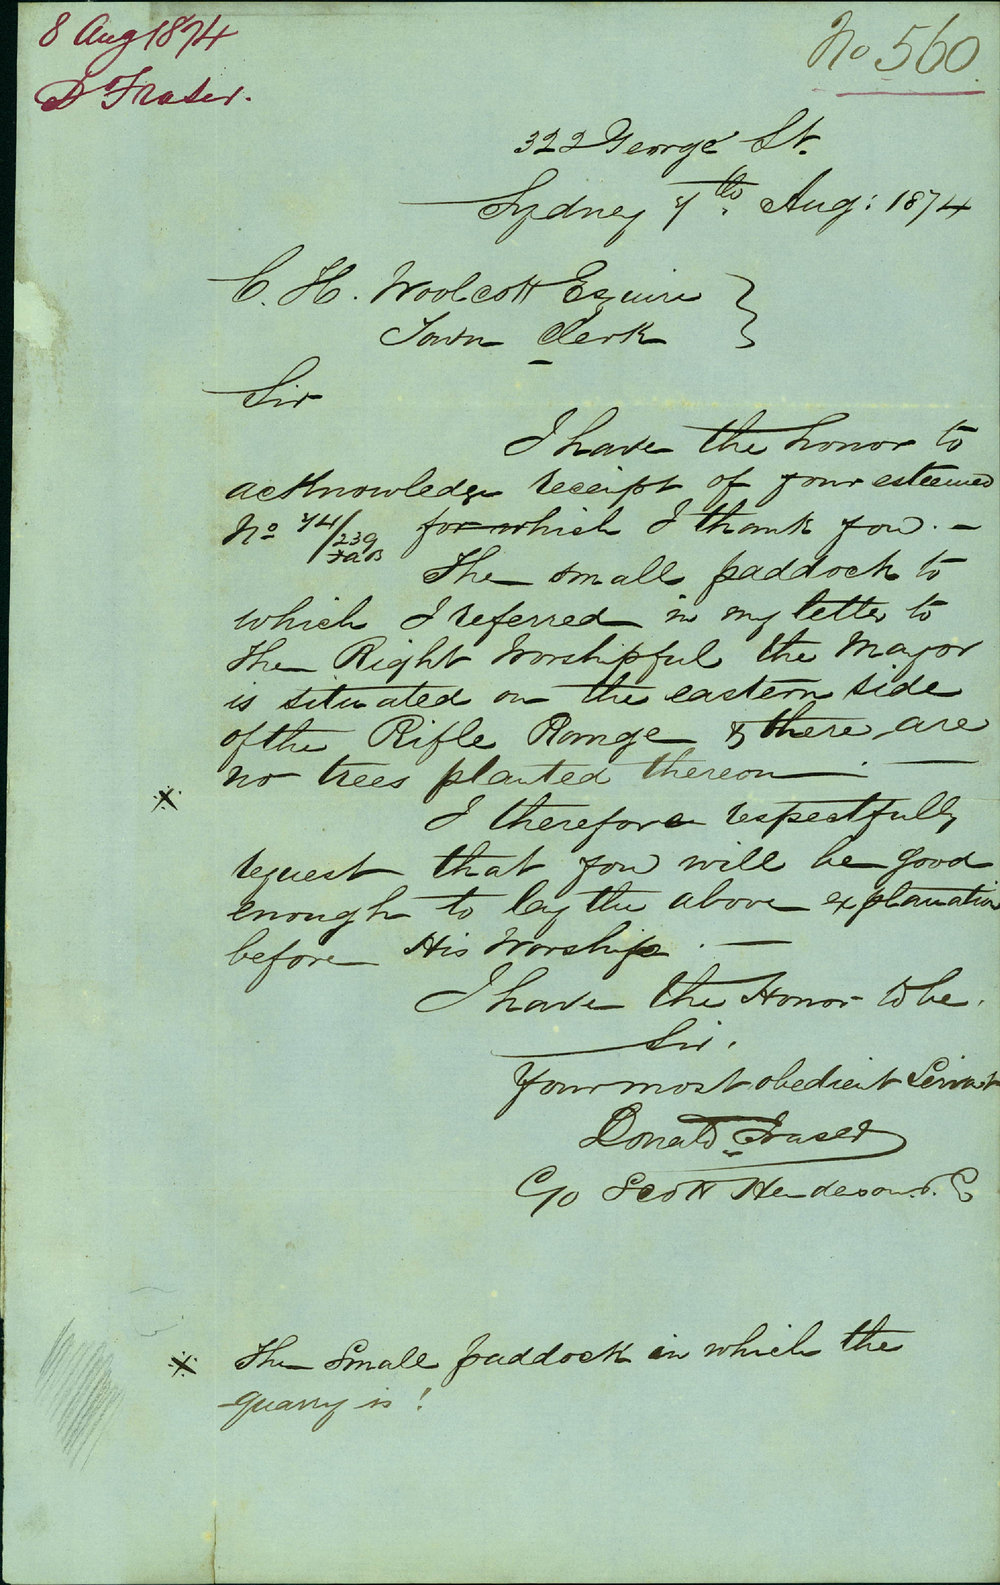 8 Aug 1874
D Fraser.
No 560.
322 George St.
Sydney 7th. Aug: 1874
C. H. Woolcott Esquire
Town Clerk
Sir
I have the honor to
acknowledge receipt of your esteemed
No 74/239 for which I thank you. —
The small paddock to
which I referred in my letter to
the Right Worshipful the Mayor
is situated on the eastern side
of the Rifle Range & there are
no trees planted thereon. —
I therefore respectfully
request that you will be good
enough to lay the above explanation
before His Worship. —
I have the Honor to be.
Sir.
Your most obedient Servant
Donald Fraser
C/o Scott Henderson & Co
X The small paddock in which the
quarry is!